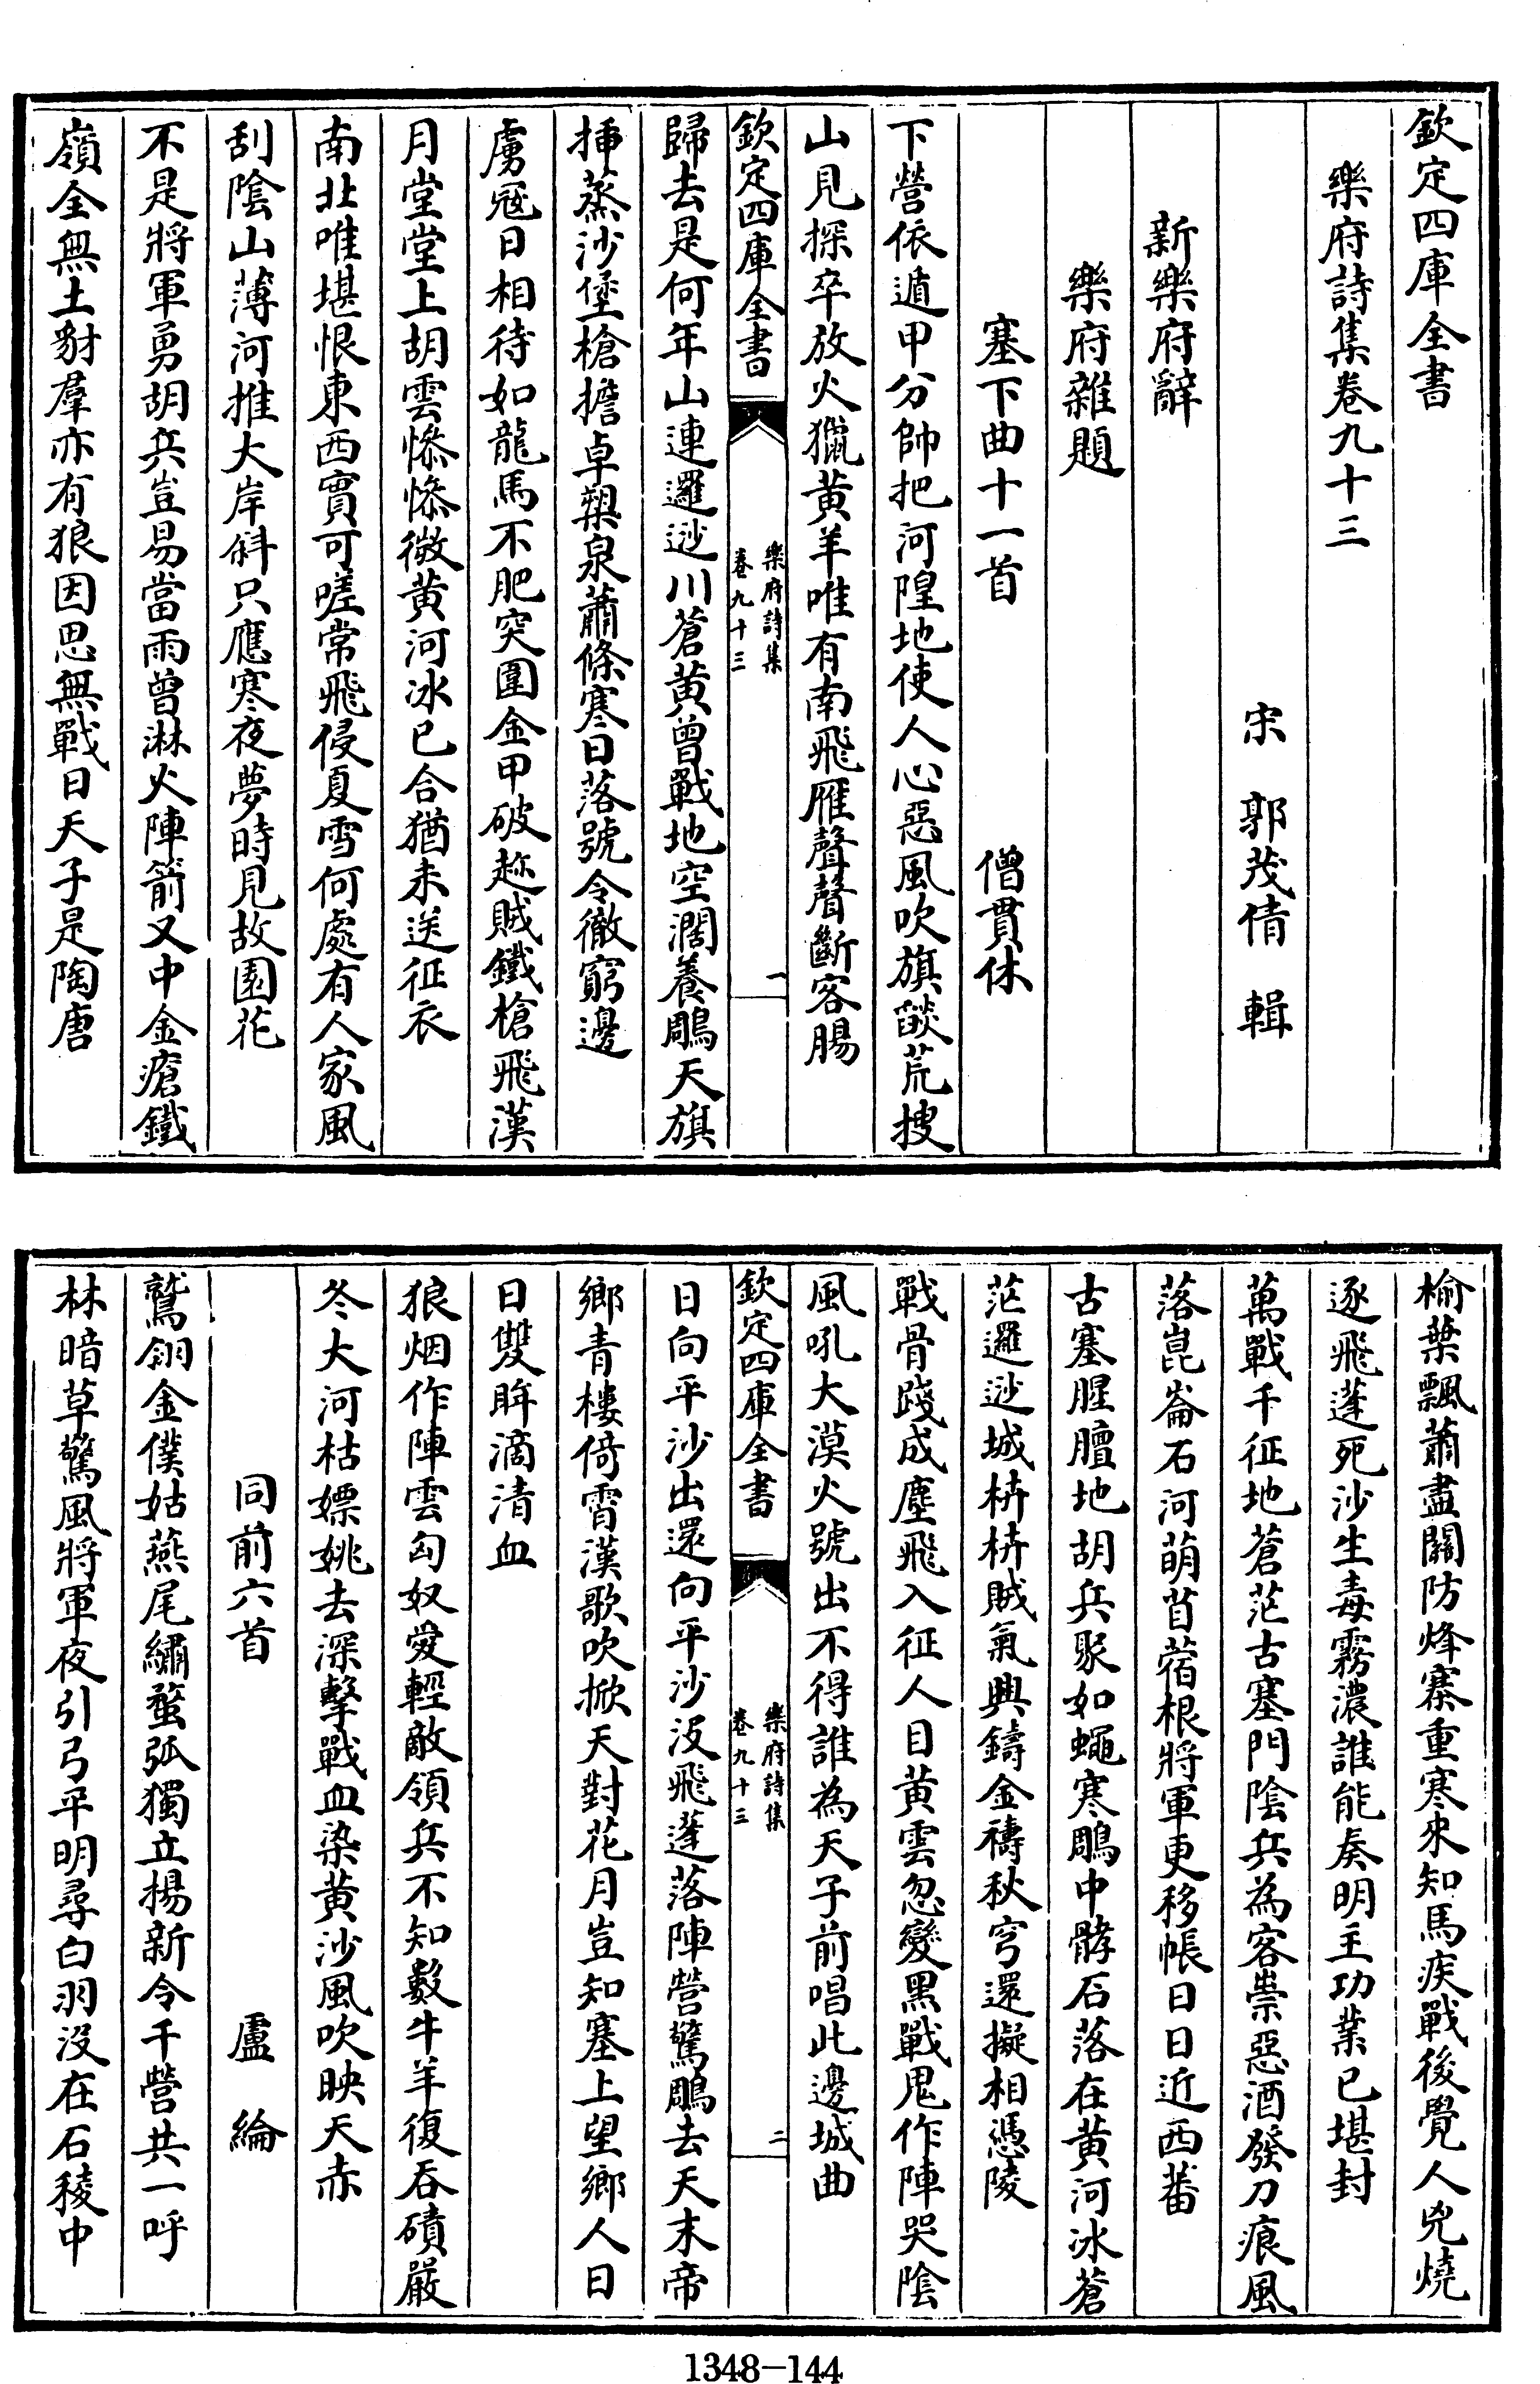 欽定四庫全書
樂府詩集卷九十三
宋 郭茂倩 輯
新樂府辭
樂府雜題
塞下曲十一首 僧貫休
下營依遁甲分帥把河隍地使人心惡風吹旗燄荒搜
山見探卒放火獵黄羊唯有南飛雁聲聲斷客腸
欽定四庫全書
樂府詩集
卷九十三
一
歸去是何年山連邏逤川蒼黄曾戰地空濶養鵰天旗
揷蒸沙堡槍擔卓槊泉蕭條寒日落號令徹窮邊
虜寇日相待如龍馬不肥突圍金甲破趂賊鐵槍飛漢
月堂堂上胡雲慘慘微黄河冰已合猶未送征衣
南北唯堪恨東西實可嗟常飛侵夏雪何處有人家風
刮隂山薄河推大岸斜只應寒夜夢時見故園花
不是將軍勇胡兵豈易當雨曾淋火陣箭又中金瘡鐵
嶺全無土豺羣亦有狼因思無戰日天子是陶唐
榆葉飄蕭盡關防烽寨重寒來知馬疾戰後覺人兇燒
逐飛蓬死沙生毒霧濃誰能奏明主功業已堪封
萬戰千征地蒼茫古塞門隂兵為客祟惡酒發刀痕風
落崑崙石河萌苜蓿根將軍更移帳日日近西蕃
古塞腥膻地胡兵聚如蠅寒鵰中髇石落在黄河冰蒼
茫邏逤城枿枿賊氣興鑄金禱秋穹還擬相憑陵
戰骨踐成塵飛入征人目黄雲忽變黑戰鬼作陣哭隂
風吼大漠火號出不得誰為天子前唱此邊城曲
欽定四庫全書
樂府詩集
卷九十三
二
日向平沙出還向平沙没飛蓬落陣營驚鵰去天末帝
鄉青樓倚霄漢歌吹掀天對花月豈知塞上望鄉人日
日雙眸滴清血
狼烟作陣雲匈奴愛輕敵領兵不知數牛羊復吞磧嚴
冬大河枯嫖姚去深擊戰血染黄沙風吹映天赤
同前六首 盧 綸
鷲翎金僕姑燕尾繡蝥弧獨立揚新令千營共一呼
林暗草驚風將軍夜引弓平明尋白羽没在石稜中
1348-144